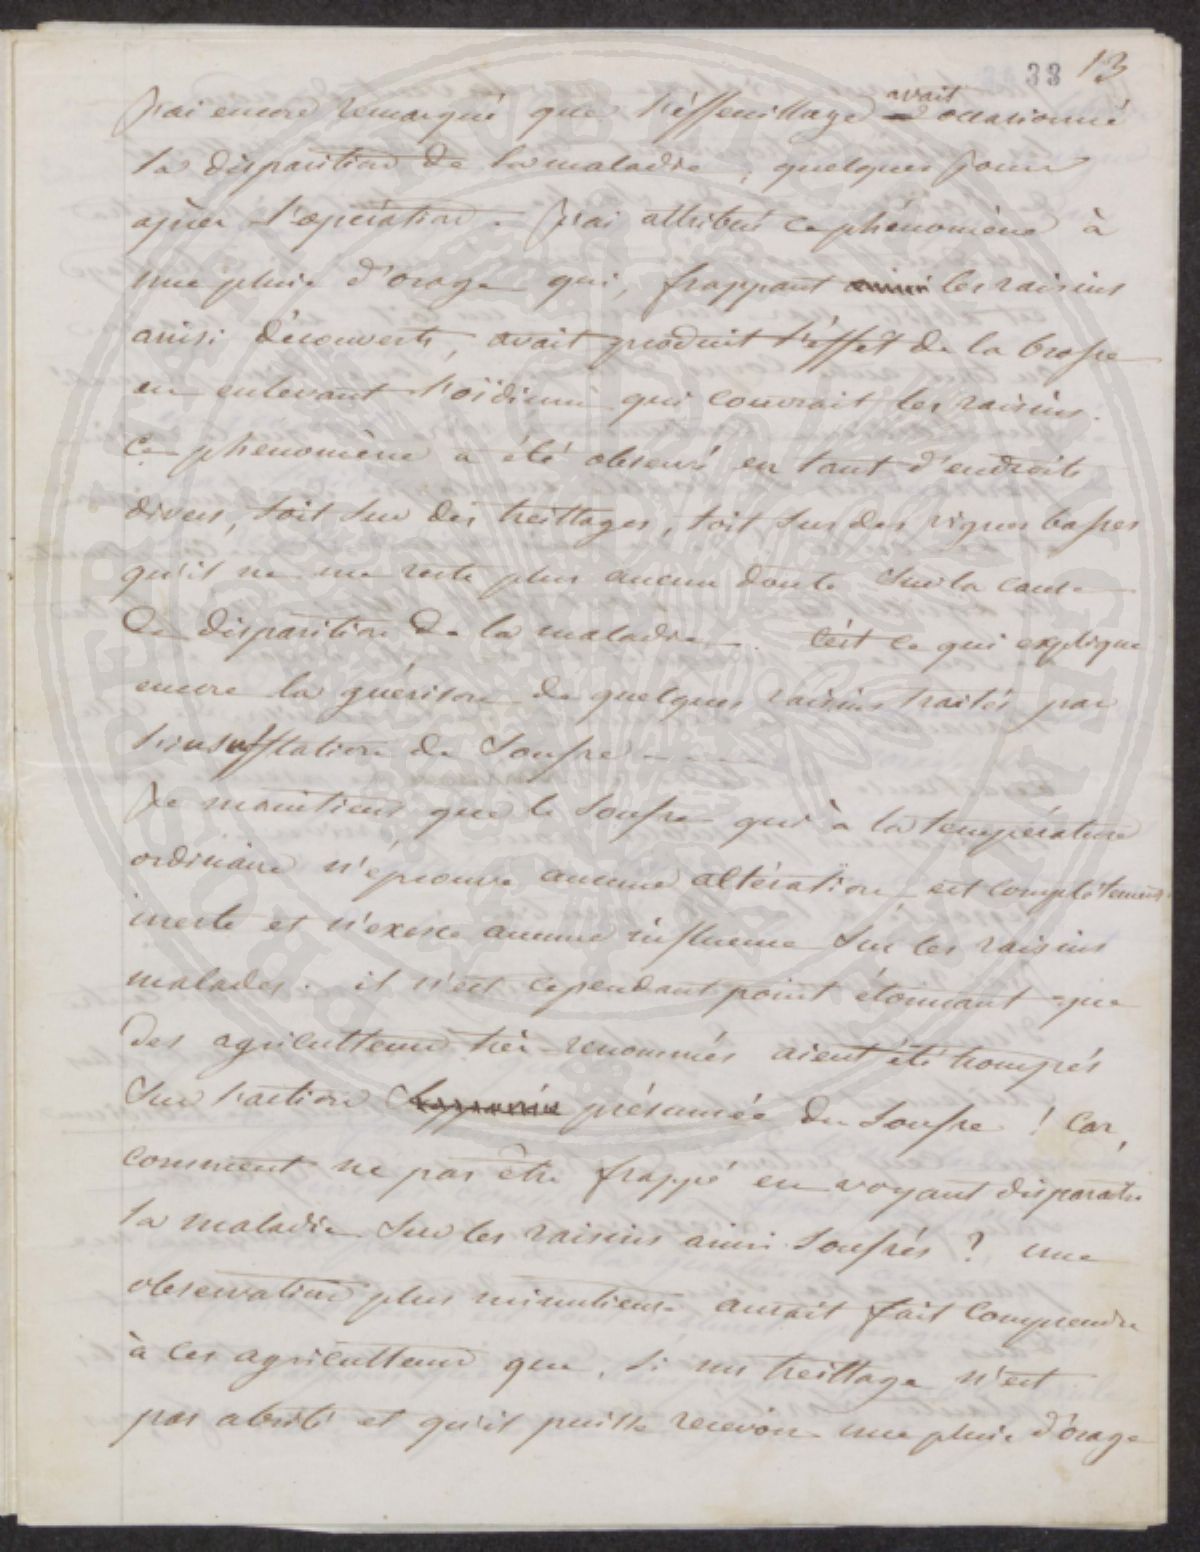 33 13
J'ai encore remarqué que l'effeuillage avait occasionné
la disparition de la maladie, quelques jours
après l'opération. J'ai attribué ce phénomène à
une pluie d'orage qui, frappant les raisins
ainsi découverts, avait produit l'effet de la brosse
en enlevant l'oïdium qui couvrait les raisins.
Ce phenomène a été observé en tant d'endroits
divers, soit sur des treillages, soit sur des vignes basses
qu'il ne me reste plus aucun doute sur la cause
de disparition de la maladie. C'est ce qui explique
encore la guérison de quelques raisins traités par
l'insufflation de soufre - - - -
Je maintiens que le soufre qui à la température
ordinaire n'éprouve aucune altération, est complètement
inerte et n'exerce aucune influence sur les raisins
malades. il n'est cependant point étonnant que
des agriculteurs très-renommés aient été trompés
sur l'action présumée du soufre ! Car,
comment ne pas être frappé en voyant disparaître
la maladie sur les raisins ainsi soufrés ? une
observation plus minutieuse aurait fait comprendre
à ces agriculteurs que, si un treillage n'est
pas abrité et qu'il puisse recevoir une pluie d'orage